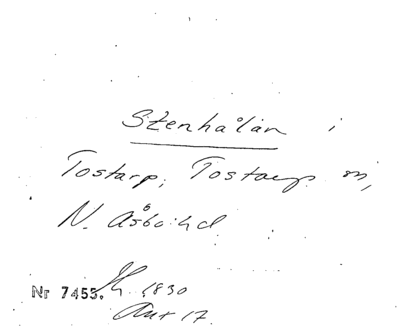 Stenhålan i
Tostarp, Tostarp sn,
N. Åsbo hd
Nr 7453. 1830